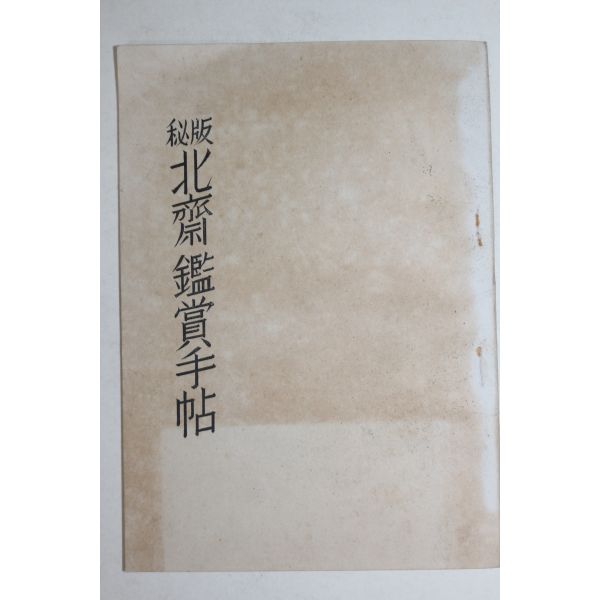 秘版
北齋鑑賞手帖